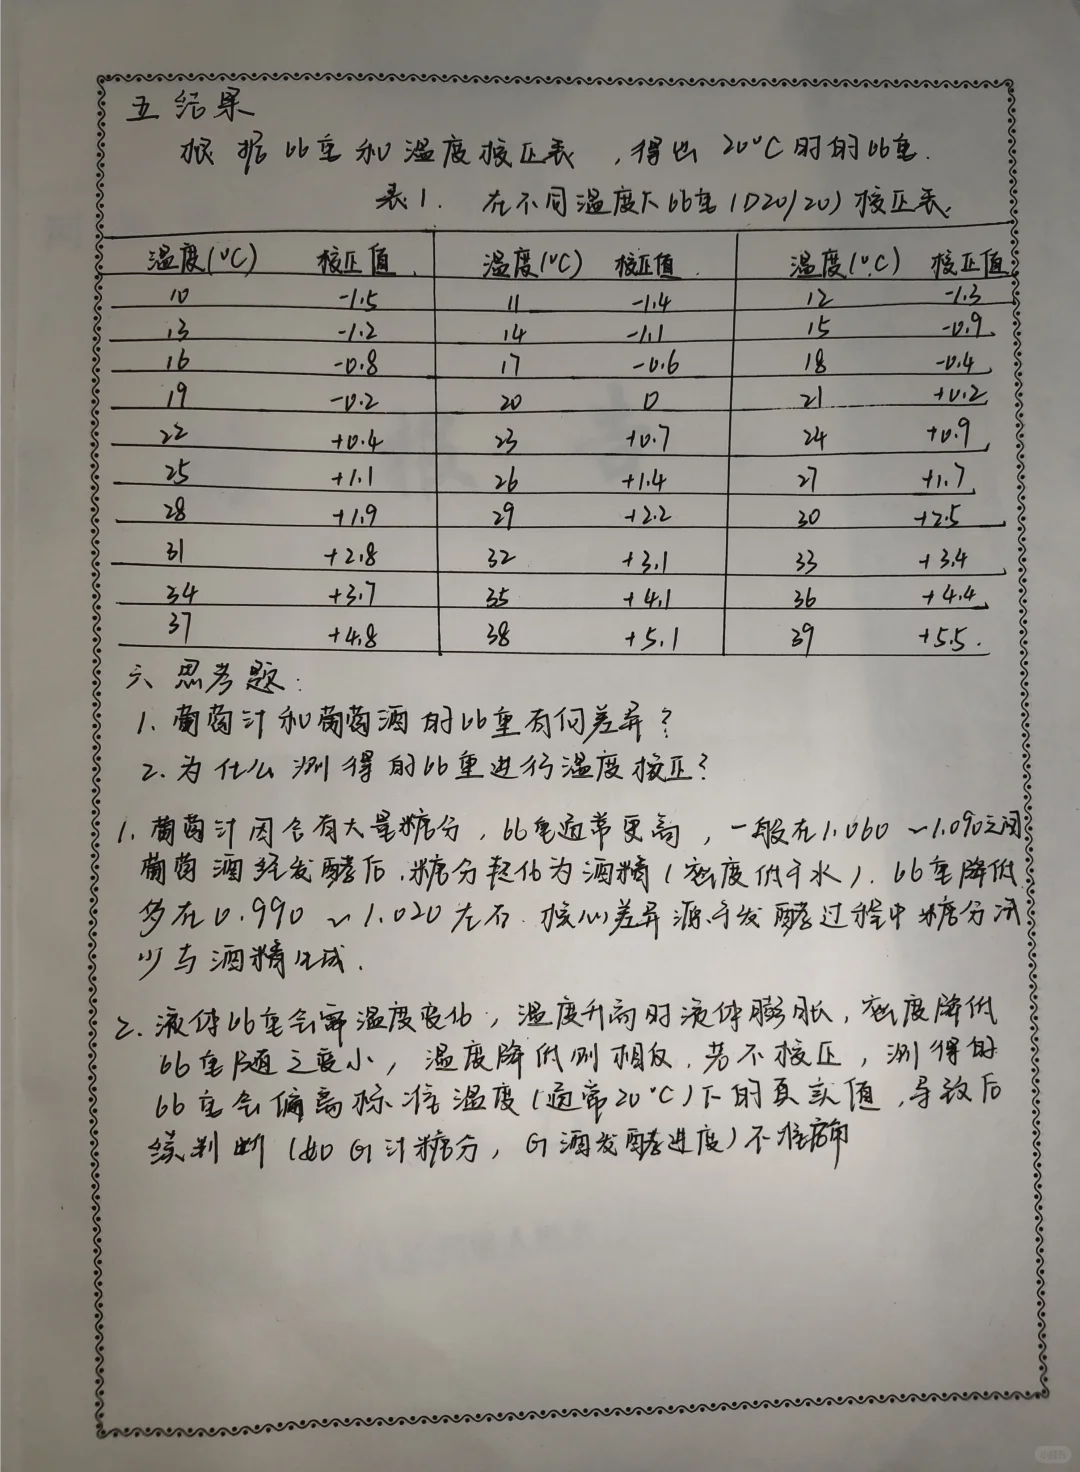 五 结果
根据比重和温度校正表，得出20℃时的比重.
表1. 在不同温度下比重(D20/20)校正表.
温度(℃) 校正值 温度(℃) 校正值 温度(℃) 校正值
10 -1.5 11 -1.4 12 -1.3
13 -1.2 14 -1.1 15 -0.9
16 -0.8 17 -0.6 18 -0.4
19 -0.2 20 0 21 +0.2
22 +0.4 23 +0.7 24 +0.9
25 +1.1 26 +1.4 27 +1.7
28 +1.9 29 +2.2 30 +2.5
31 +2.8 32 +3.1 33 +3.4
34 +3.7 35 +4.1 36 +4.4
37 +4.8 38 +5.1 39 +5.5.
六、思考题:
1. 葡萄汁和葡萄酒的比重有何差异?
2. 为什么测得的比重进行温度校正?
1. 葡萄汁因含有大量糖分，比重通常更高，一般在1.060~1.090之间
葡萄酒经发酵后，糖分转化为酒精(密度低于水)，比重降低，
多在0.990~1.020左右. 核心差异源于发酵过程中糖分减
少与酒精生成.
2. 液体比重会随温度变化，温度升高时液体膨胀，密度降低
比重随之变小，温度降低则相反. 若不校正，测得的
比重会偏离标准温度(通常20℃)下的真实值，导致后
续判断(如G汁糖分，G酒发酵进度)不准确